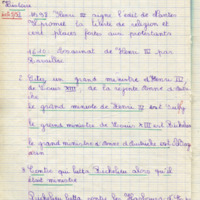 1598 Henri IV signe l'édit de Nantes
Il promet la liberté de religion et
cent places fortes aux protestants
1610 Assassinat de Henri IV par
Ravaillac
2. Citez un grand ministre d'Henri IV,
de Louis XIII, de la régente Anne d'Autri-
che
le grand ministre de Henri IV est Sully
le grand ministre de Louis XIII est Richelieu
le grand ministre d'Anne d'Autriche est Maza
rin
3. Contre qui lutta Richelieu alors qu'il
était ministre
Richelieu lutta contre les